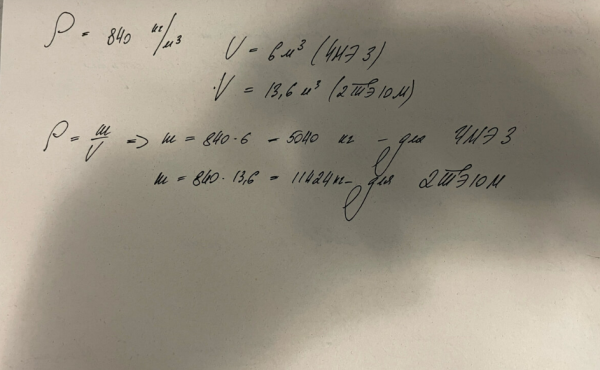 ρ = 840 кг/м³
V = 6 м³ (ЧМЭ3)
V = 13,6 м³ (2ТЭ10М)
ρ = m/V => m = 840·6 = 5040 кг – для ЧМЭ3
m = 840·13,6 = 11424 кг – для 2ТЭ10М